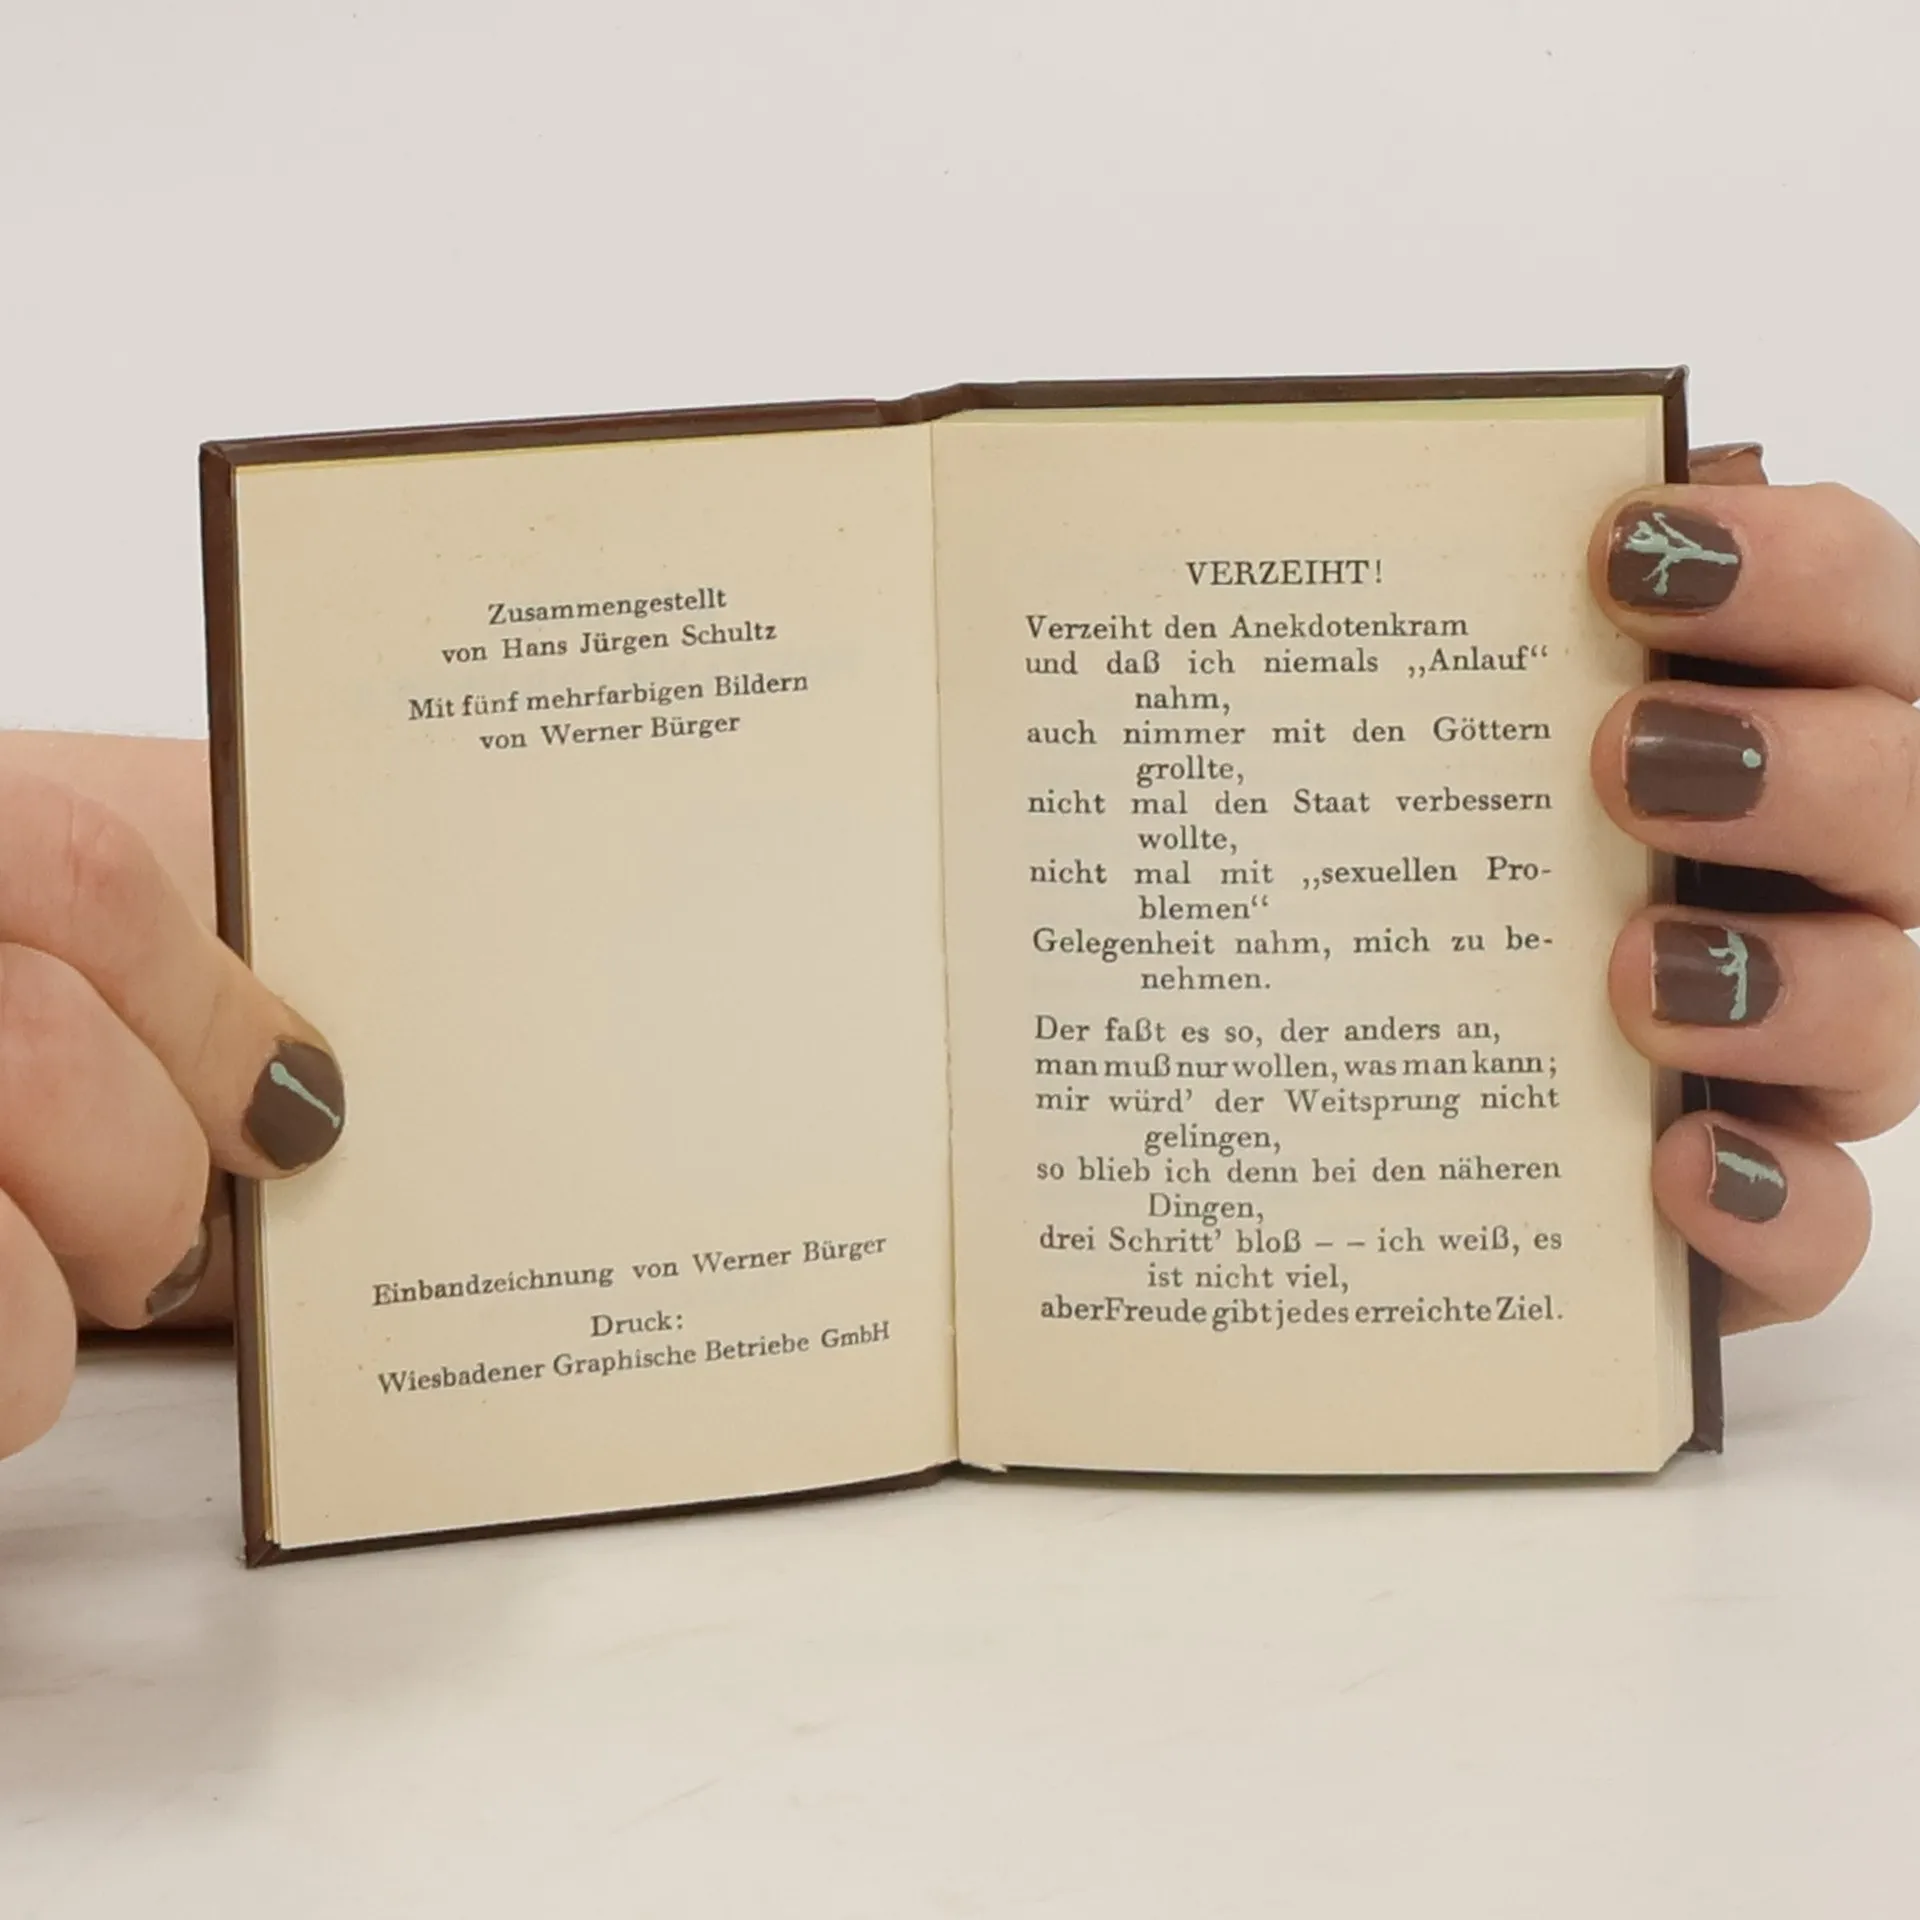 Zusammengestellt
von Hans Jürgen Schultz
Mit fünf mehrfarbigen Bildern
von Werner Bürger
Einbandzeichnung von Werner Bürger
Druck:
Wiesbadener Graphische Betriebe GmbH
VERZEIHT!
Verzeiht den Anekdotenkram
und daß ich niemals „Anlauf“
nahm,
auch nimmer mit den Göttern
grollte,
nicht mal den Staat verbessern
wollte,
nicht mal mit „sexuellen Pro-
blemen“
Gelegenheit nahm, mich zu be-
nehmen.
Der faßt es so, der anders an,
man muß nur wollen, was man kann;
mir würd’ der Weitsprung nicht
gelingen,
so blieb ich denn bei den näheren
Dingen,
drei Schritt’ bloß – – ich weiß, es
ist nicht viel,
aber Freude gibt jedes erreichte Ziel.